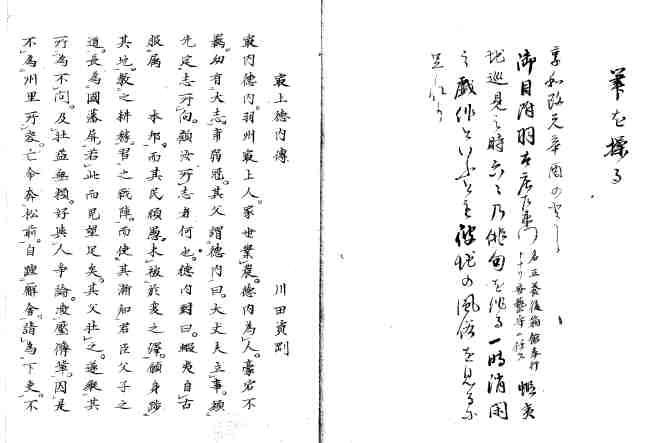 筆を操る
享和改元辛酉のとし
御目附羽太庄左衛門
名正養後箱館奉行
トナリ安藝守ニ任ス
蝦夷
地巡見之時六々乃俳句を作る一時消閑
之戯作といふとも彼地の風俗を見るに
足れり
最上德内傳 川田資
最内德内。羽州最上人。家世業農。德内為人。豪宕不
羈。幼有大志。甫弱冠。其父謂德内曰。大丈夫立事。須
先定志所向。顧汝所志者何也。德内對曰。蝦夷自古
服属 本邦。而其民頑愚。未被於之澤。願身踏
其地。教之耕稼。習之戰陣。而使其漸知君臣父子之
道。長為國藩屏。若此而児望足矣。其父壮之。遂棄其
所為不問。及壮益無頼。好與人爭論。凌壓儕輩。因是
不為州里所容。亡命奔松前。自踵廨舎。請為下吏。不